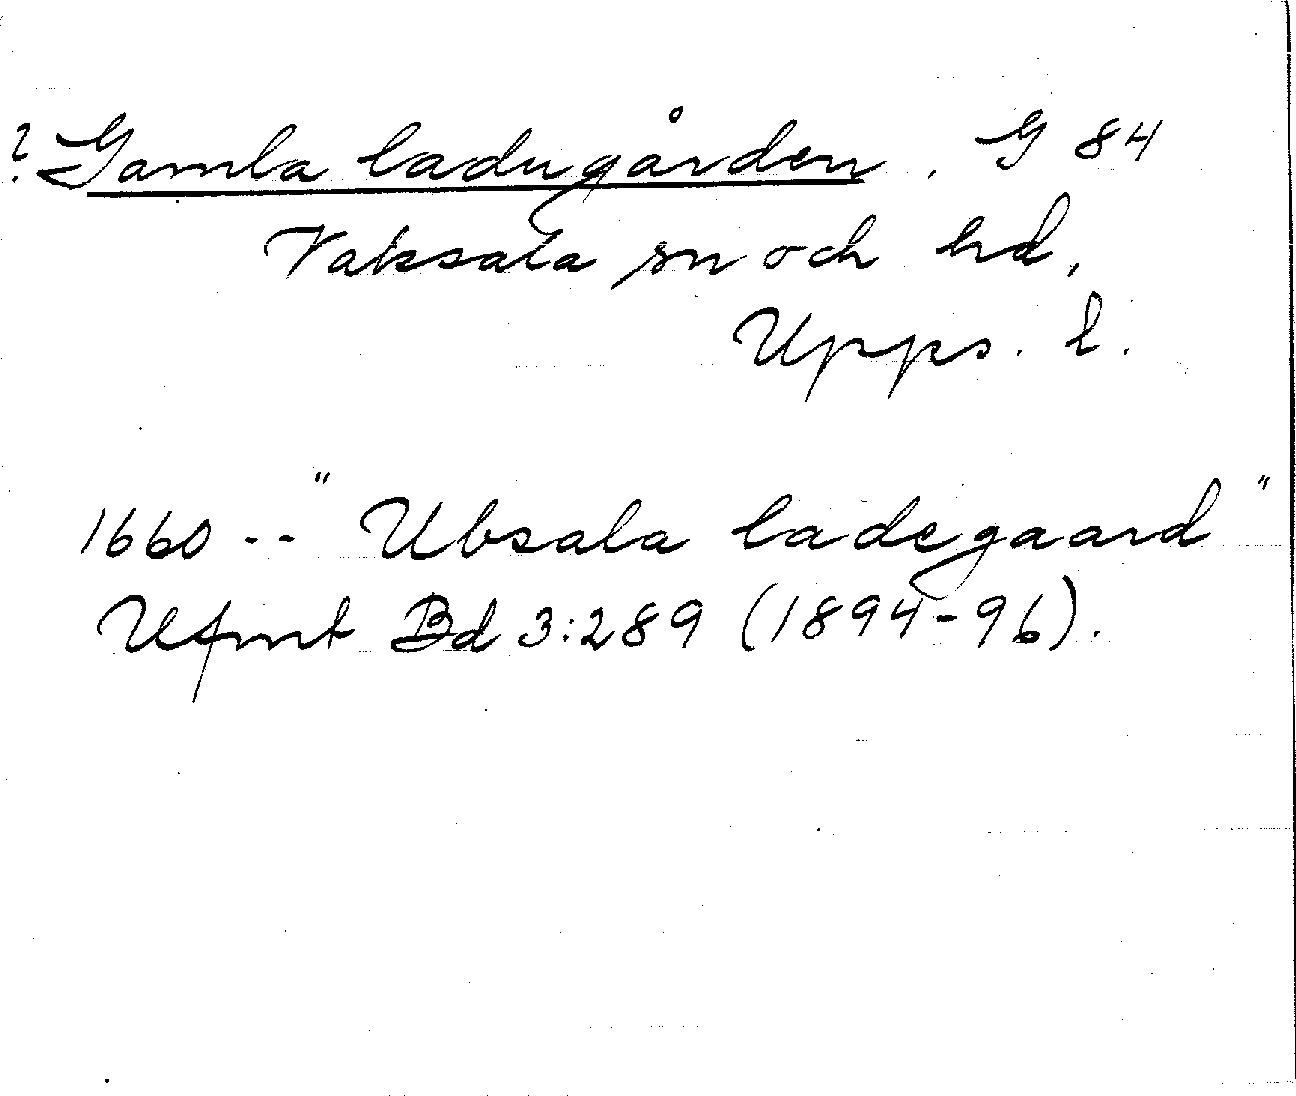 ? Gamla ladugården. G 84
Vaksala sn och hd,
Upps. l.
1660 -- "Ubsala ladegaard"
Ufmt Bd 3:289 (1894-96).